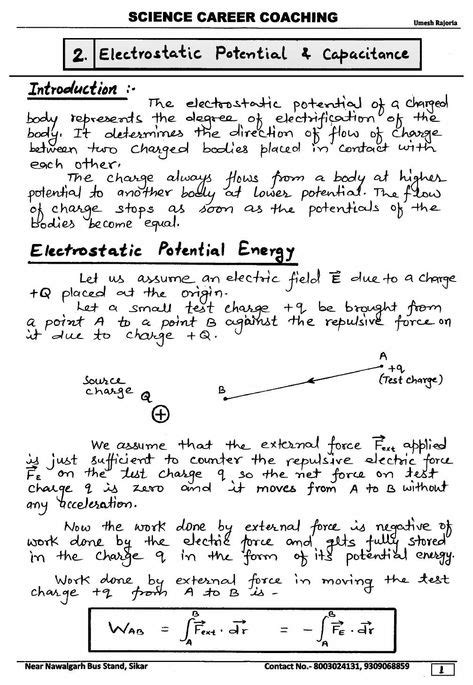 SCIENCE CAREER COACHING
Umesh Rajoria
2. Electrostatic Potential & Capacitance
Introduction :-
The electrostatic potential of a charged
body represents the degree of electrification of the
body. It determines the direction of flow of charge
between two charged bodies placed in contact with
each other.
The charge always flows from a body at higher
potential to another body at lower potential. The flow
of charge stops as soon as the potentials of the
bodies become equal.
Electrostatic Potential Energy
Let us assume an electric field E⃗ due to a charge
+Q placed at the origin.
Let a small test charge +q be brought from
a point A to a point B against the repulsive force on
it due to charge +Q.
A
+q
(Test charge)
B
Source
charge Q
⊕
We assume that the external force F⃗ext applied
is just sufficient to counter the repulsive electric force
F⃗E on the test charge q so the net force on test
charge q is zero and it moves from A to B without
any acceleration.
Now the work done by external force is negative of
work done by the electric force and gets fully stored
in the charge q in the form of its potential energy.
Work done by external force in moving the test
charge +q from A to B is -
W_AB = ∫_A^B F⃗ext · d⃗r = - ∫_A^B F⃗E · d⃗r
Near Nawalgarh Bus Stand, Sikar
Contact No.- 8003024131, 9309068859
1